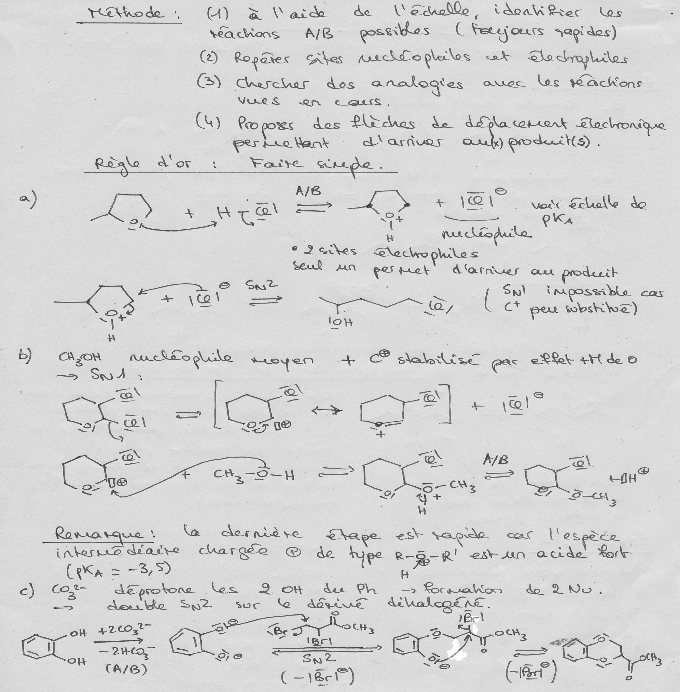 Méthode : (1) à l'aide de l'échelle, identifier les
réactions A/B possibles (toujours rapides)
(2) Repérer sites nucléophiles et électrophiles
(3) Chercher des analogies avec les réactions
vues en cours.
(4) Proposer des flèches de déplacement électronique
permettant d'arriver au(x) produit(s).
Règle d'or : Faire simple.
a) O + H-Cl A/B O+ H + |Cl|⊖ voir échelle de
pKA
nucléophile
• 2 sites électrophiles
seul un permet d'arriver au produit
O+ H + |Cl|⊖ SN2 |OH Cl| (SN1 impossible car
C+ peu substitué)
b) CH3OH nucléophile moyen + C⊕ stabilisé par effet +M de O
→ SN1 :
O Cl| Cl| ⇌ [ O ⊕ Cl| ↔ O + Cl| ] + |Cl|⊖
O ⊕ Cl| + CH3-O-H ⇌ O Cl| O+-CH3 H A/B O Cl| O-CH3 + H⊕
Remarque : la dernière étape est rapide car l'espèce
intermédiaire chargée ⊕ de type R-O-R' est un acide fort
H
(pKA = -3,5)
c) CO3²⁻ déprotone les 2 OH du Ph → formation de 2 Nu.
→ double SN2 sur le dérivé dihalogéné.
OH OH +2CO3²⁻ -2HCO3⁻ (A/B) O⊖ O⊖ |Br Br| O OCH3 SN2 (-|Br|⊖) O O⊖ |Br| O OCH3 (-|Br|⊖) O O O OCH3